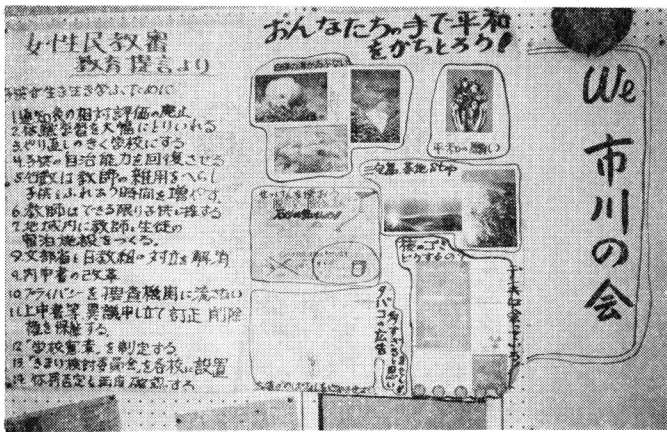 女性民教審
教育提言より
子供が生き生き学ぶために
1.通知表の相対評価の廃止
2.体験学習を大幅にとりいれる
3.やり直しのきく学校にする
4.子供の自治能力を回復させる
5.行政は教師の雑用をへらし
子供とふれあう時間を増やす
6.教師はできる限り子供に接する
7.地域内に教師と生徒の
宿泊施設をつくる。
8.文部省と日教組の対立を解消
9.内申書の改革
10.プライバシーを捜査機関に流さない
11.上申書等異議申し立て訂正削除
権を保障する。
12.「学校憲章」を制定する
13.「きまり検討委員会」を各校に設置
14.体罰否定を再度確認する
おんなたちの手で平和
をかちとろう!
平和の願い
三宅島基地Stop
せっけんを使おう
桜のゴミ
どうするの?
タバコの広告
We
市川の会